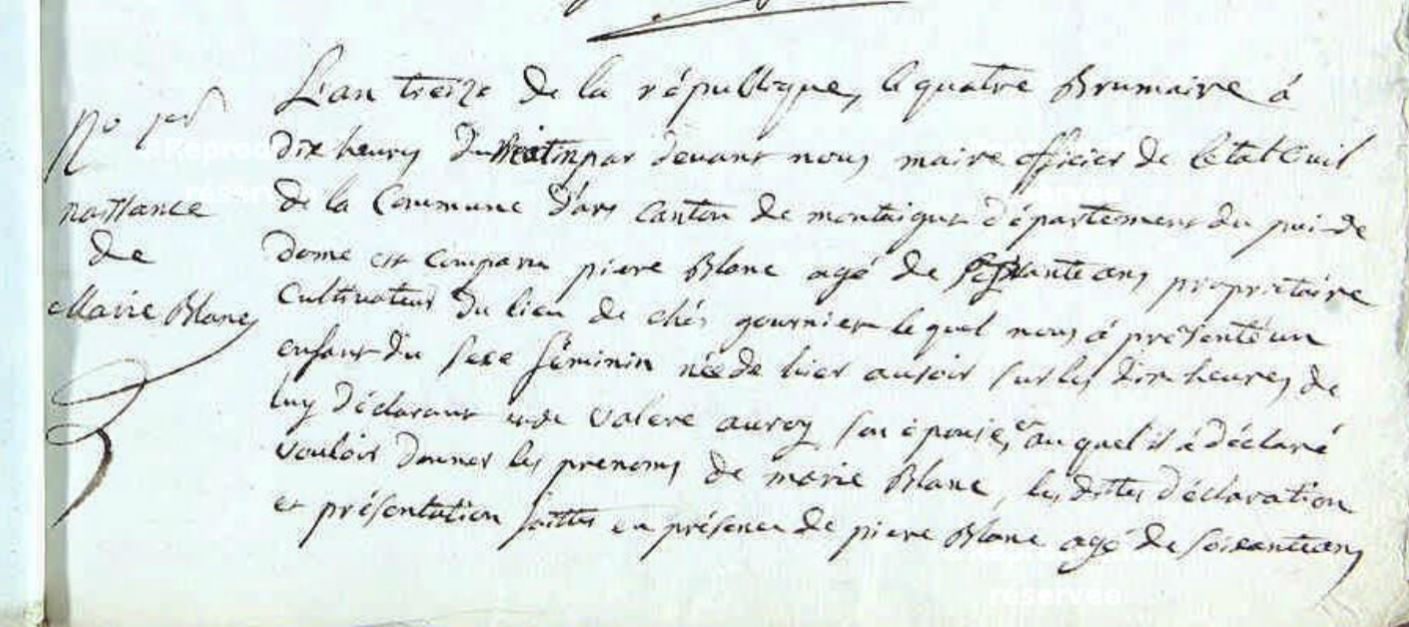 No per
naissance
de
Marie Blanc
L'an treize de la république, le quatre Brumaire à
dix heures du matin par devant nous maire officier de l'état Civil
de la Commune d'ars Canton de montaigut département du pui-de
Dome est Comparu piere Blanc agé de ans propriétaire
Cultivateur du lieu de chés gournier lequel nous à présenté un
enfant du sexe féminin née de hier au soir sur les dix heures de
luy déclarant et de valere auroy son épouse, et au quel il à déclaré
vouloir donner les prenoms de marie Blanc, les dittes déclaration
et présentation faittes en présence de piere Blanc agé de soixante ans
Reproduction
réservée
réservée
réservée